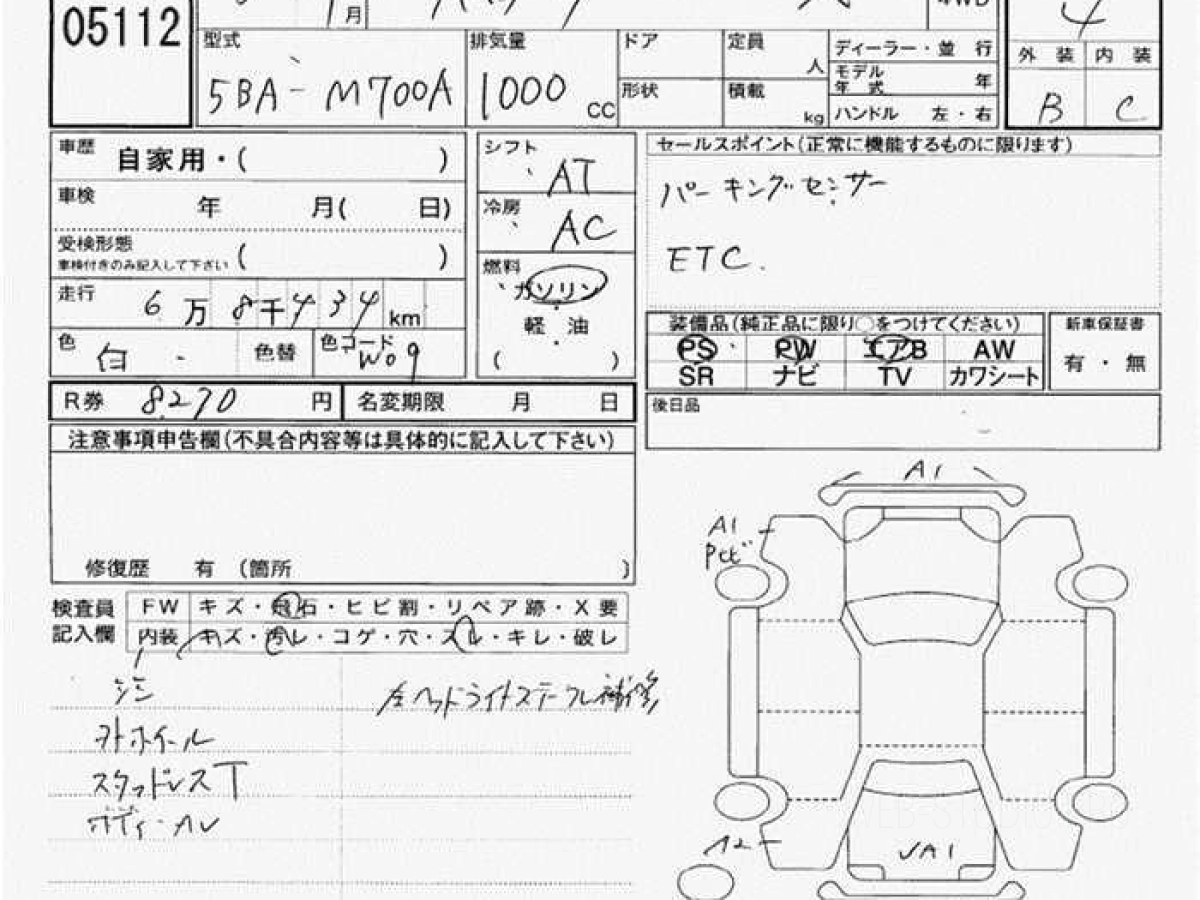 05112
月
4
型式 5BA-M700A
排気量 1000 CC
ドア
形状
定員 人
積載 kg
ディーラー・並 行
モデル年式 年
ハンドル 左・右
外 装 内 装
B C
車歴 自家用・( )
車検 年 月( 日)
受検形態 ( )
車検付きのみ記入して下さい
走行 6万8千434km
色 白 色替 色コード W09
シフト AT
冷房 AC
燃料 ガソリン
軽 油
( )
セールスポイント(正常に機能するものに限ります)
パーキングセンサー
ETC.
装備品(純正品に限り○をつけてください)
PS PW エアB AW
SR ナビ TV カワシート
新車保証書
有・無
R券 8270 円 名変期限 月 日
後日品
注意事項申告欄(不具合内容等は具体的に記入して下さい)
修復歴 有 (箇所 )
検査員記入欄
FW キズ・飛石・ヒビ割・リペア跡・X要
内装 キズ・汚レ・コゲ・穴・スレ・キレ・破レ
ヲトホイール
スタッドレスT
ボディーカレ
A1
A1
A2
A1